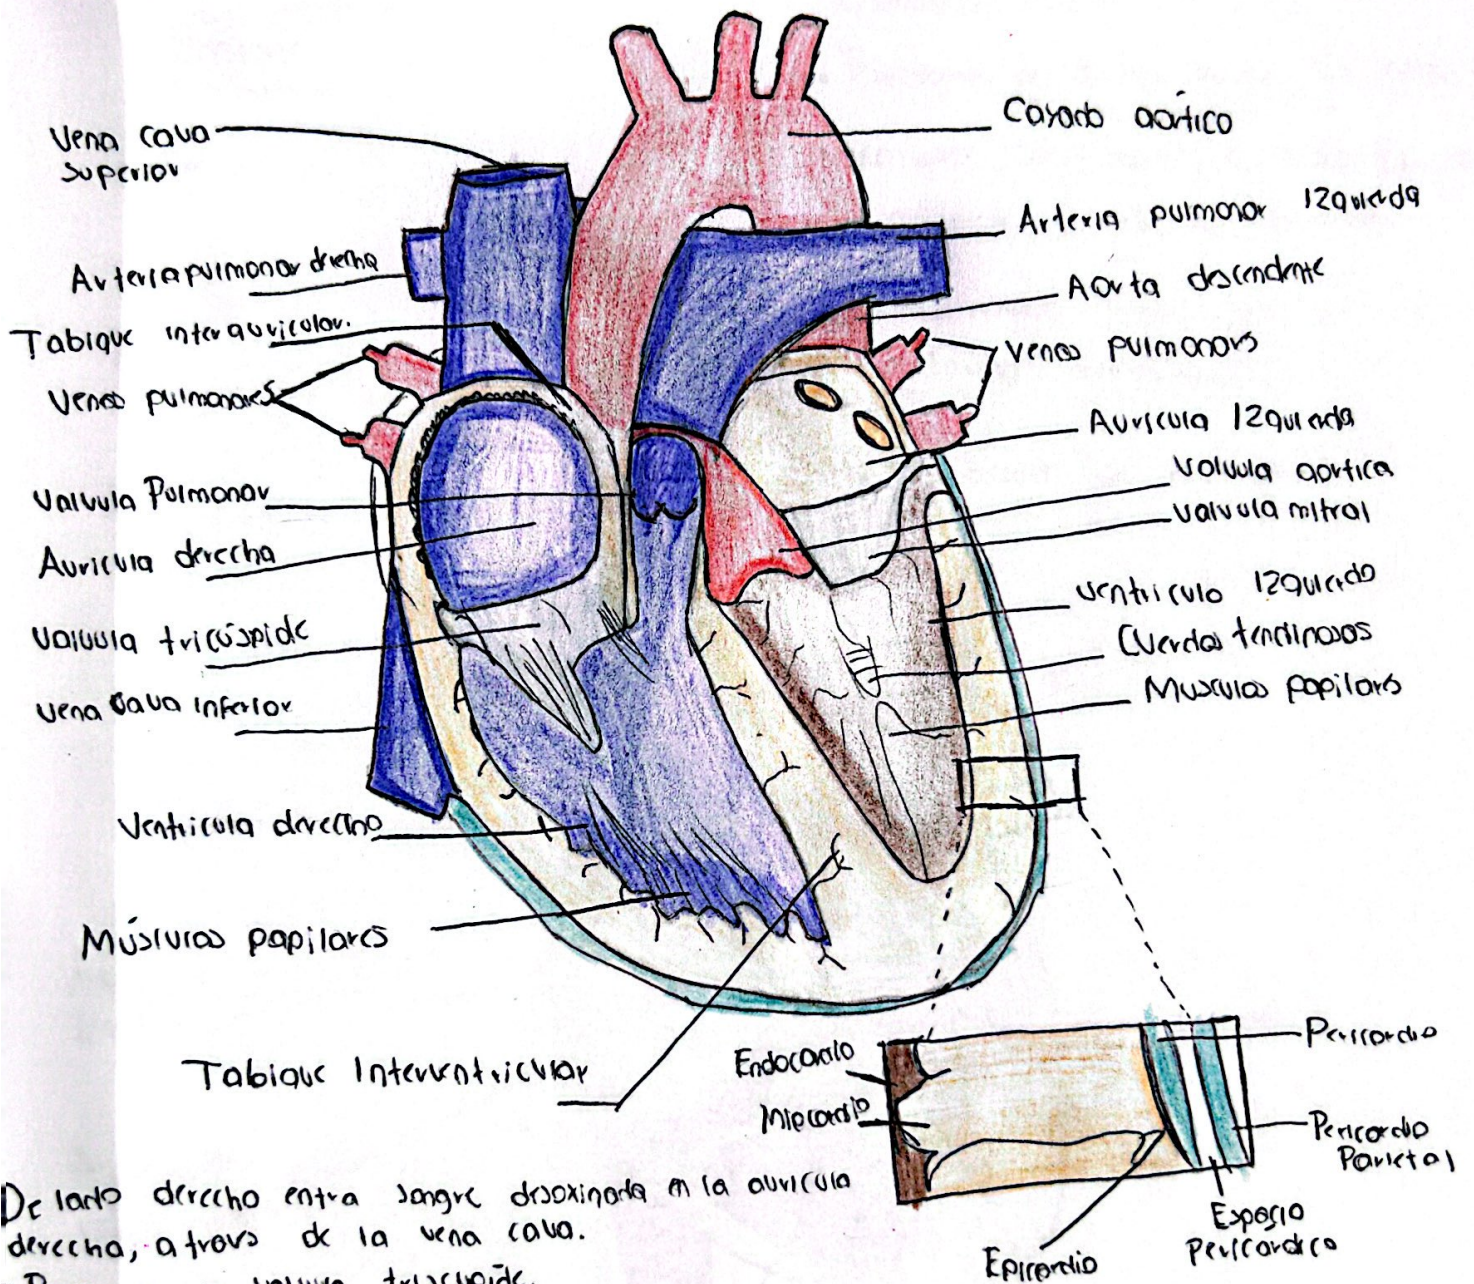 Vena cava
Superior
Arteria pulmonar drecha
Tabique interauricular.
Venas pulmonares
Valvula Pulmonar
Auricula derecha
Valvula tricúspide
Vena Cava Inferior
Ventricula derecho
Músculos papilares
Tabique Interventricular
Cayado aórtico
Arteria pulmonar Izquierda
Aorta descendente
Venas pulmonars
Auricula Izquierda
Valvula aortica
Valvula mitral
Ventriculo Izquierdo
Cuerdas tendinosas
Musculos papilars
Endocardio
Miocardio
Epicardio
Pericardio
Pericardio
Parietal
Espacio
Pericardico
De lado derecho entra sangre desoxinada en la auricula
derecha, a travs de la vena cava.